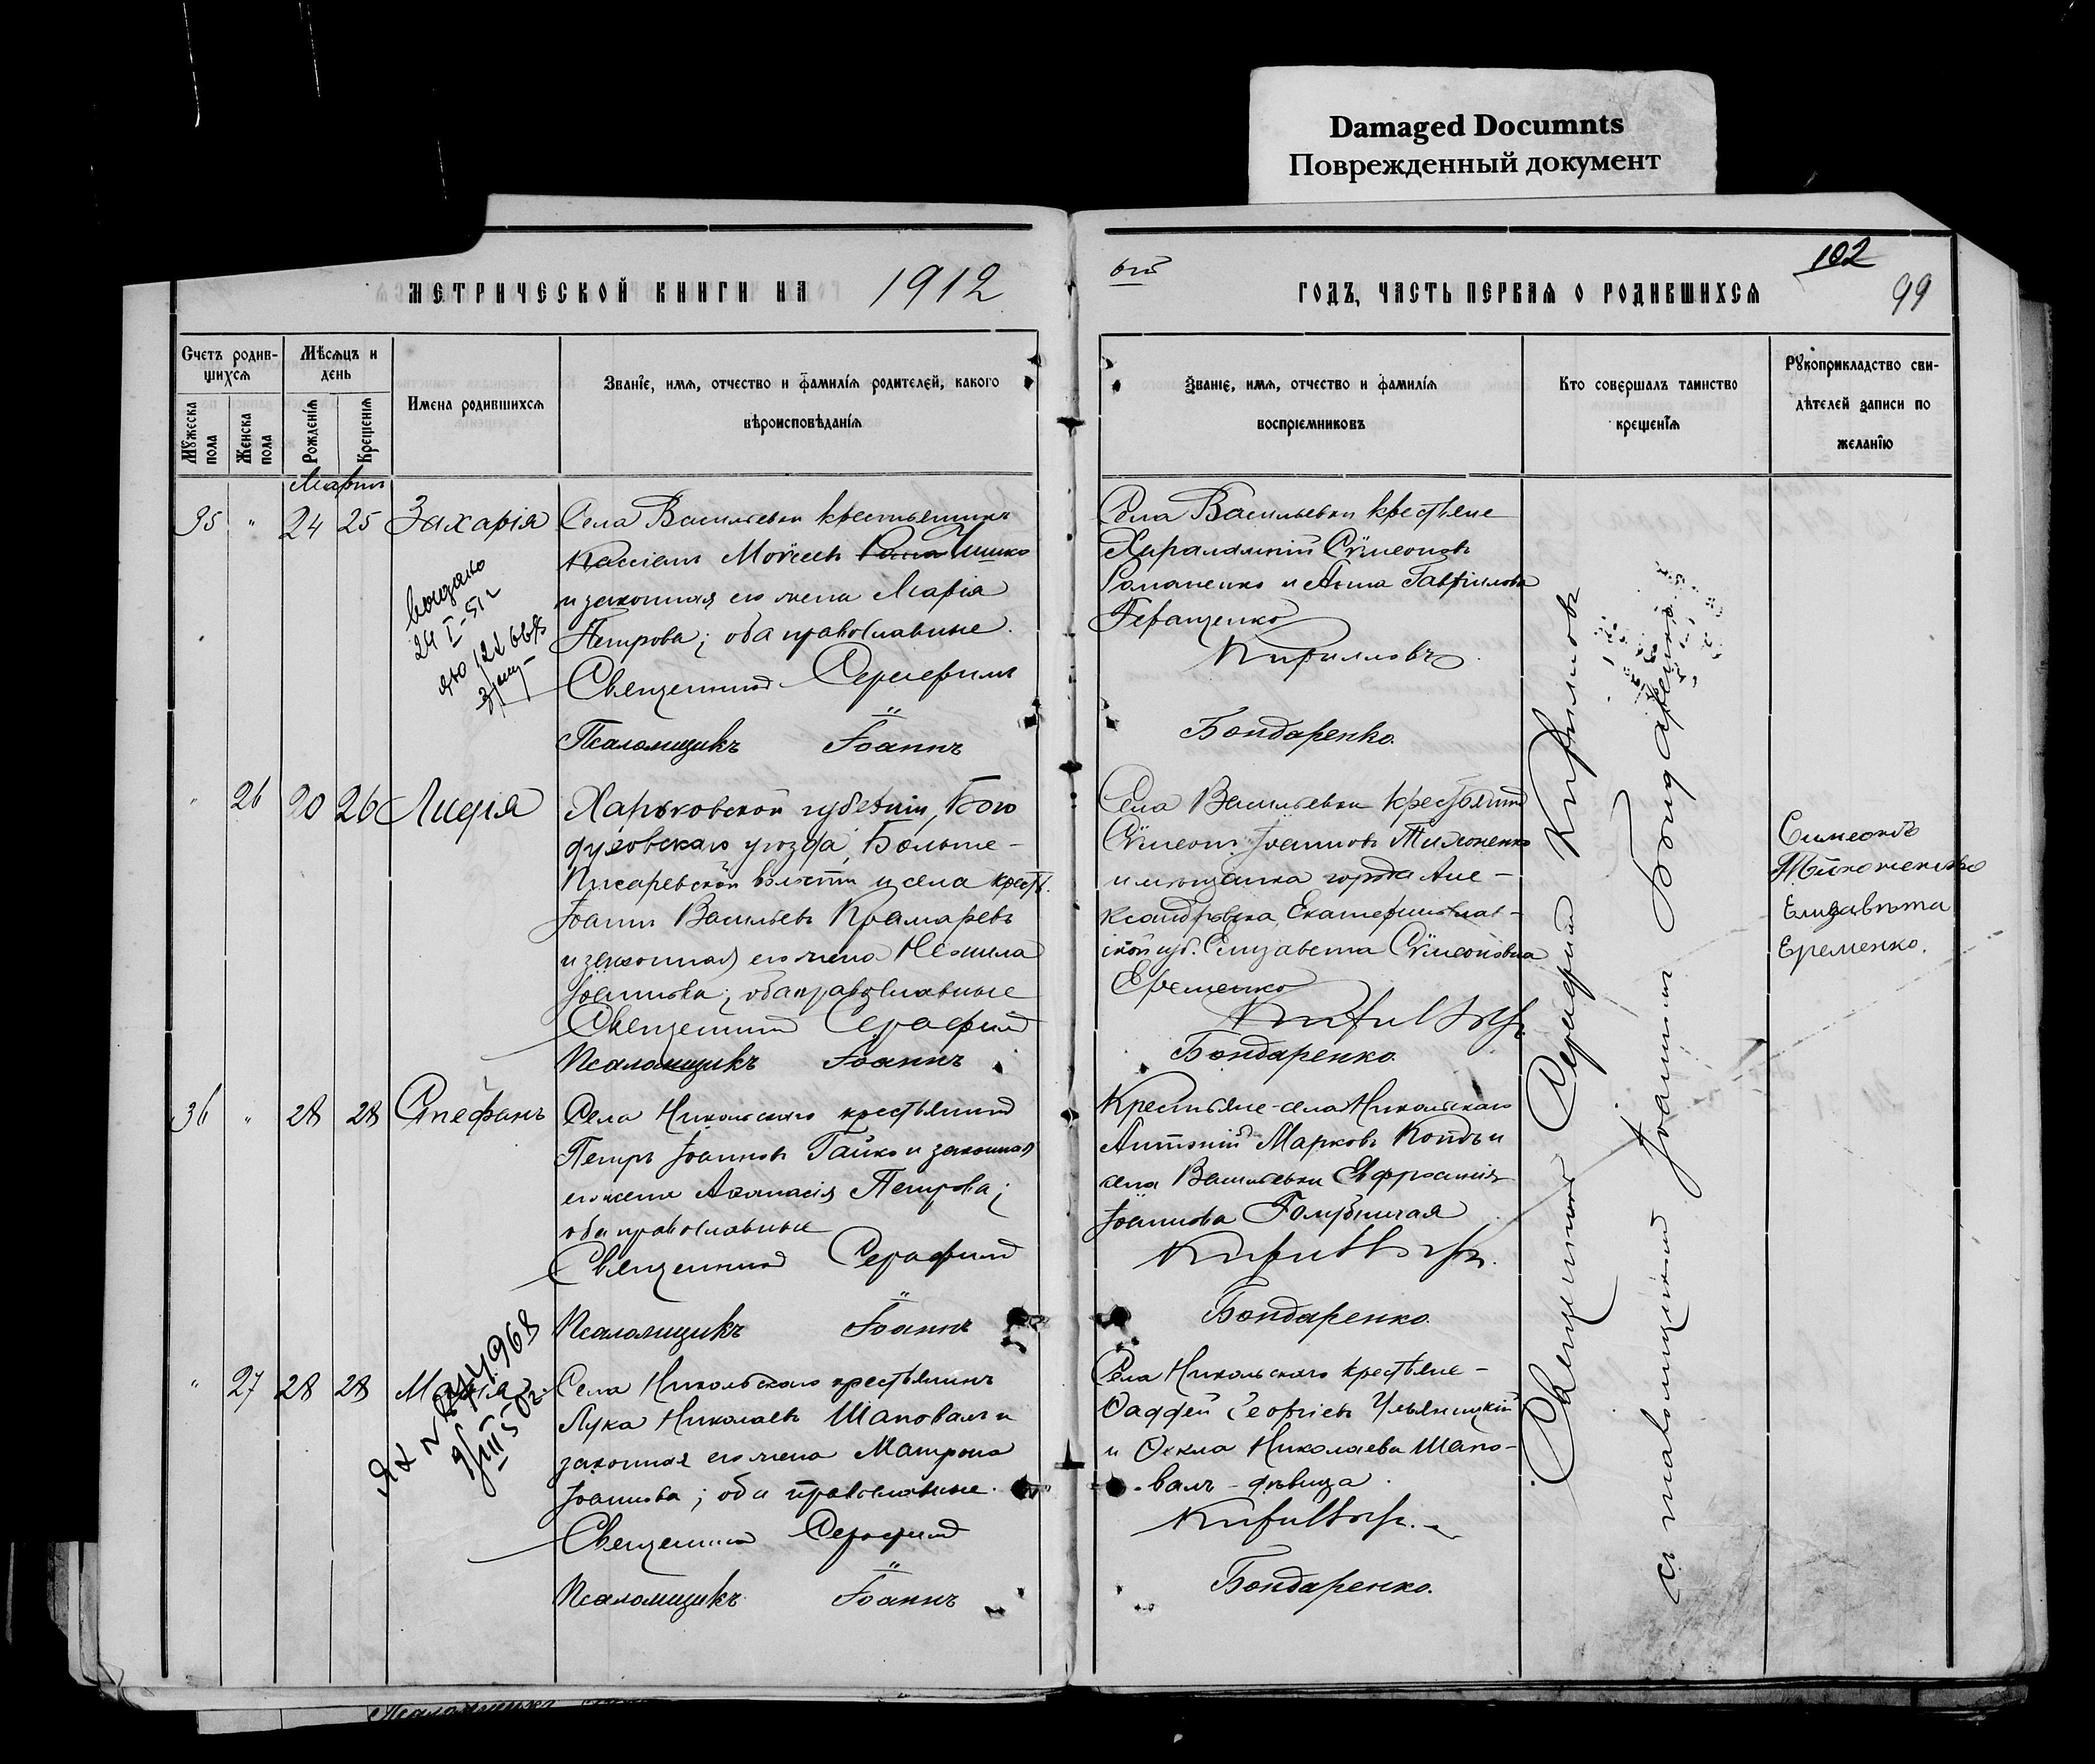 Damaged Documnts
Поврежденный документ
МЕТРИЧЕСКОЙ КНИГИ НА 1912
Счетъ родив-
шихся
Мѣсяцъ и
день
Мужеска
пола
Женска
пола
Рожденія
Крещенія
Имена родившихся
Званіе, имя, отчество и фамилія родителей, какого
вѣроисповѣданія
Мартъ
35 " 24 25 Захарія
Села Васильевки крестьянинъ
Кассіанъ Мойсеевъ
и законная его жена Марія
Петрова; оба православные.
Священникъ Серафимъ
Псаломщикъ Іоаннъ
выдано
24 I-51 г
" 26 20 26 Лидія
Харьковской губерніи, Бого
духовскаго уѣзда, Больше-
Писаревской волости и села крест.
Іоаннъ Васильевъ Крамаревъ
и законная его жена Неонила
Іоаннова; оба православные
Священникъ Серафимъ
Псаломщикъ Іоаннъ
36 " 28 28 Стефанъ
Села Никольскаго крестьянинъ
Петръ Іоанновъ Гайко и законная
его жена Аѳанасія Петрова;
оба православные
Священникъ Серафимъ
Псаломщикъ Іоаннъ
" 27 28 28 Марія
Села Никольскаго крестьянинъ
Лука Николаевъ Шаповалъ и
законная его жена Матрона
Іоаннова; оба православные.
Священникъ Серафимъ
Псаломщикъ Іоаннъ
102
99
ГОДЪ, ЧАСТЬ ПЕРВАЯ О РОДИВШИХСЯ
Званіе, имя, отчество и фамилія
воспріемниковъ
Кто совершалъ таинство
крещенія
Рукоприкладство сви-
дѣтелей записи по
желанію
Села Васильевки крестьяне
Харалампій Сѵмеоновъ
Романенко и Анна Гавріилова
Геращенко
Кирилловъ
Бондаренко.
Села Васильевки крестьянинъ
Сѵмеонъ Іоанновъ Тихоненко
и мѣщанка города Але-
ксандровска, Екатеринослав-
ской губ. Елизавета Сѵмеоновна
Еременко
Кирилловъ
Бондаренко.
Крестьяне села Никольскаго
Антоній Марковъ и
села Васильевки Евфросинія
Іоаннова Голубничая
Кирилловъ.
Бондаренко.
Села Никольскаго крестьяне -
Ѳаддей Георгіевъ Ульяницкій
и Ѳекла Николаева Шапо-
валъ - дѣвица.
Кирилловъ.
Бондаренко.
Священникъ Серафимъ Кирилловъ
съ псаломщикомъ Іоанномъ Бондаренко
Симеонъ
Тихоненко
Елизавѣта
Еременко.